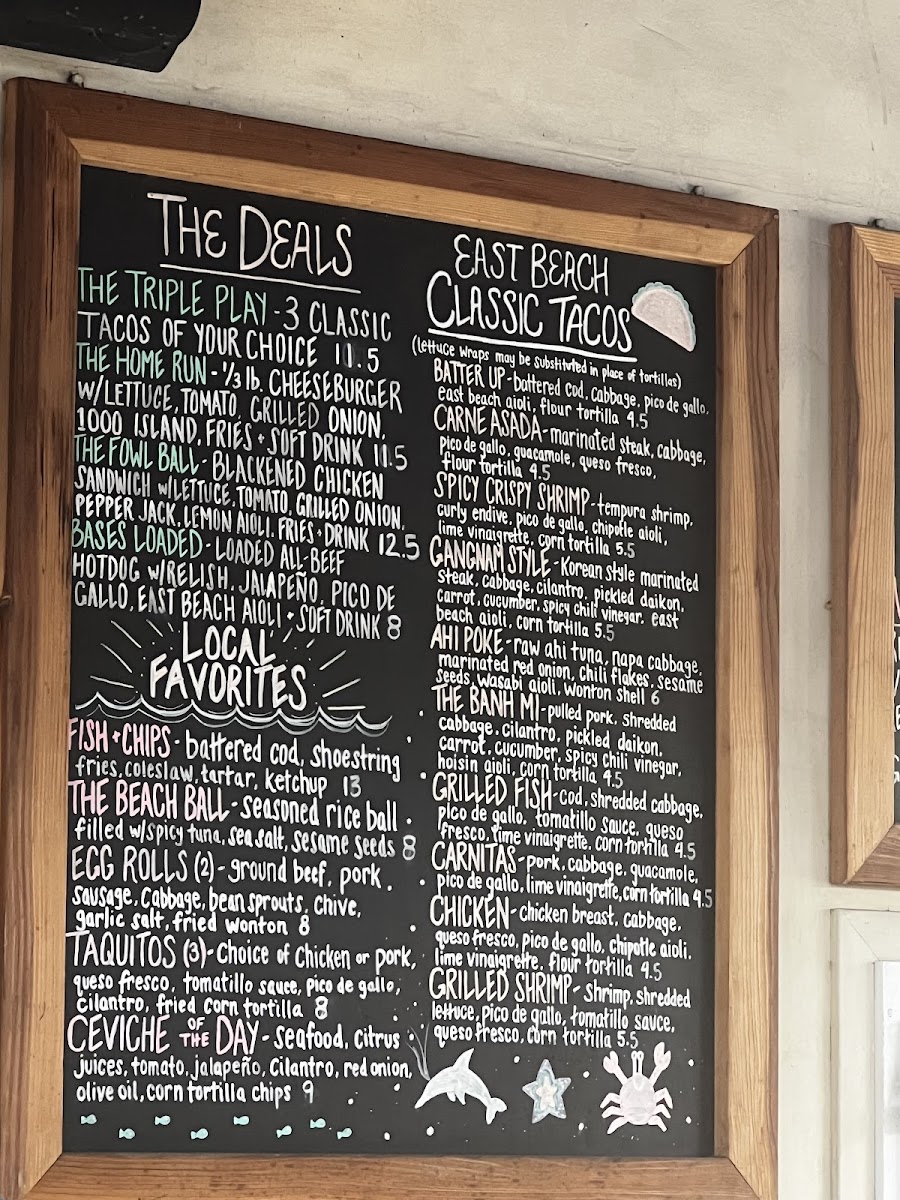 THE DEALS
THE TRIPLE PLAY - 3 CLASSIC
TACOS OF YOUR CHOICE 11.5
THE HOME RUN - 1/3 lb. CHEESEBURGER
W/LETTUCE, TOMATO, GRILLED ONION,
1000 ISLAND, FRIES + SOFT DRINK 11.5
THE FOWL BALL - BLACKENED CHICKEN
SANDWICH W/LETTUCE, TOMATO, GRILLED ONION,
PEPPER JACK, LEMON AIOLI, FRIES + DRINK 12.5
BASES LOADED - LOADED ALL-BEEF
HOTDOG W/RELISH, JALAPEÑO, PICO DE
GALLO, EAST BEACH AIOLI + SOFT DRINK 8
LOCAL
FAVORITES
FISH + CHIPS - battered cod, shoestring
fries, coleslaw, tartar, ketchup 13
THE BEACH BALL - seasoned rice ball
filled w/spicy tuna, sea salt, sesame seeds 8
EGG ROLLS (2) - ground beef, pork,
sausage, cabbage, bean sprouts, chive,
garlic salt, fried wonton 8
TAQUITOS (3) - Choice of Chicken or pork,
queso fresco, tomatillo sauce, pico de gallo,
cilantro, fried corn tortilla 8
CEVICHE OF THE DAY - seafood, citrus
juices, tomato, jalapeño, cilantro, red onion,
olive oil, corn tortilla chips 9
EAST BEACH
CLASSIC TACOS
(lettuce wraps may be substituted in place of tortillas)
BATTER UP - battered cod, cabbage, pico de gallo,
east beach aioli, flour tortilla 4.5
CARNE ASADA - marinated steak, cabbage,
pico de gallo, guacamole, queso fresco,
flour tortilla 4.5
SPICY CRISPY SHRIMP - tempura shrimp,
curly endive, pico de gallo, chipotle aioli,
lime vinaigrette, corn tortilla 5.5
GANGNAM STYLE - Korean style marinated
steak, cabbage, cilantro, pickled daikon,
carrot, cucumber, spicy chili vinegar, east
beach aioli, corn tortilla 5.5
AHI POKE - raw ahi tuna, napa cabbage,
marinated red onion, chili flakes, sesame
seeds, wasabi aioli, wonton shell 6
THE BANH MI - pulled pork, shredded
cabbage, cilantro, pickled daikon,
carrot, cucumber, spicy chili vinegar,
hoisin aioli, corn tortilla 4.5
GRILLED FISH - cod, shredded cabbage,
pico de gallo, tomatillo sauce, queso
fresco, lime vinaigrette, corn tortilla 4.5
CARNITAS - pork, cabbage, guacamole,
pico de gallo, lime vinaigrette, corn tortilla 4.5
CHICKEN - chicken breast, cabbage,
queso fresco, pico de gallo, chipotle aioli,
lime vinaigrette, flour tortilla 4.5
GRILLED SHRIMP - Shrimp, shredded
lettuce, pico de gallo, tomatillo sauce,
queso fresco, corn tortilla 5.5